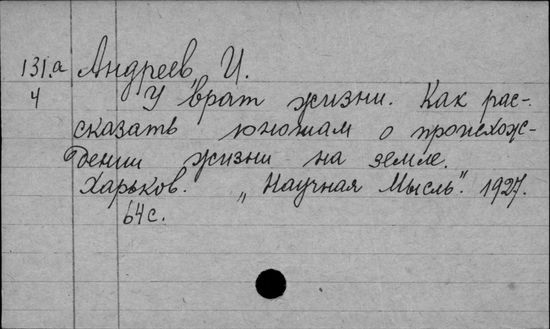 131.а Андреев, И.
4 У врат жизни. Как рас-
сказать юношам о происхож-
дении жизни на земле.
Харьков. „Научная Мысль". 1927.
64 с.